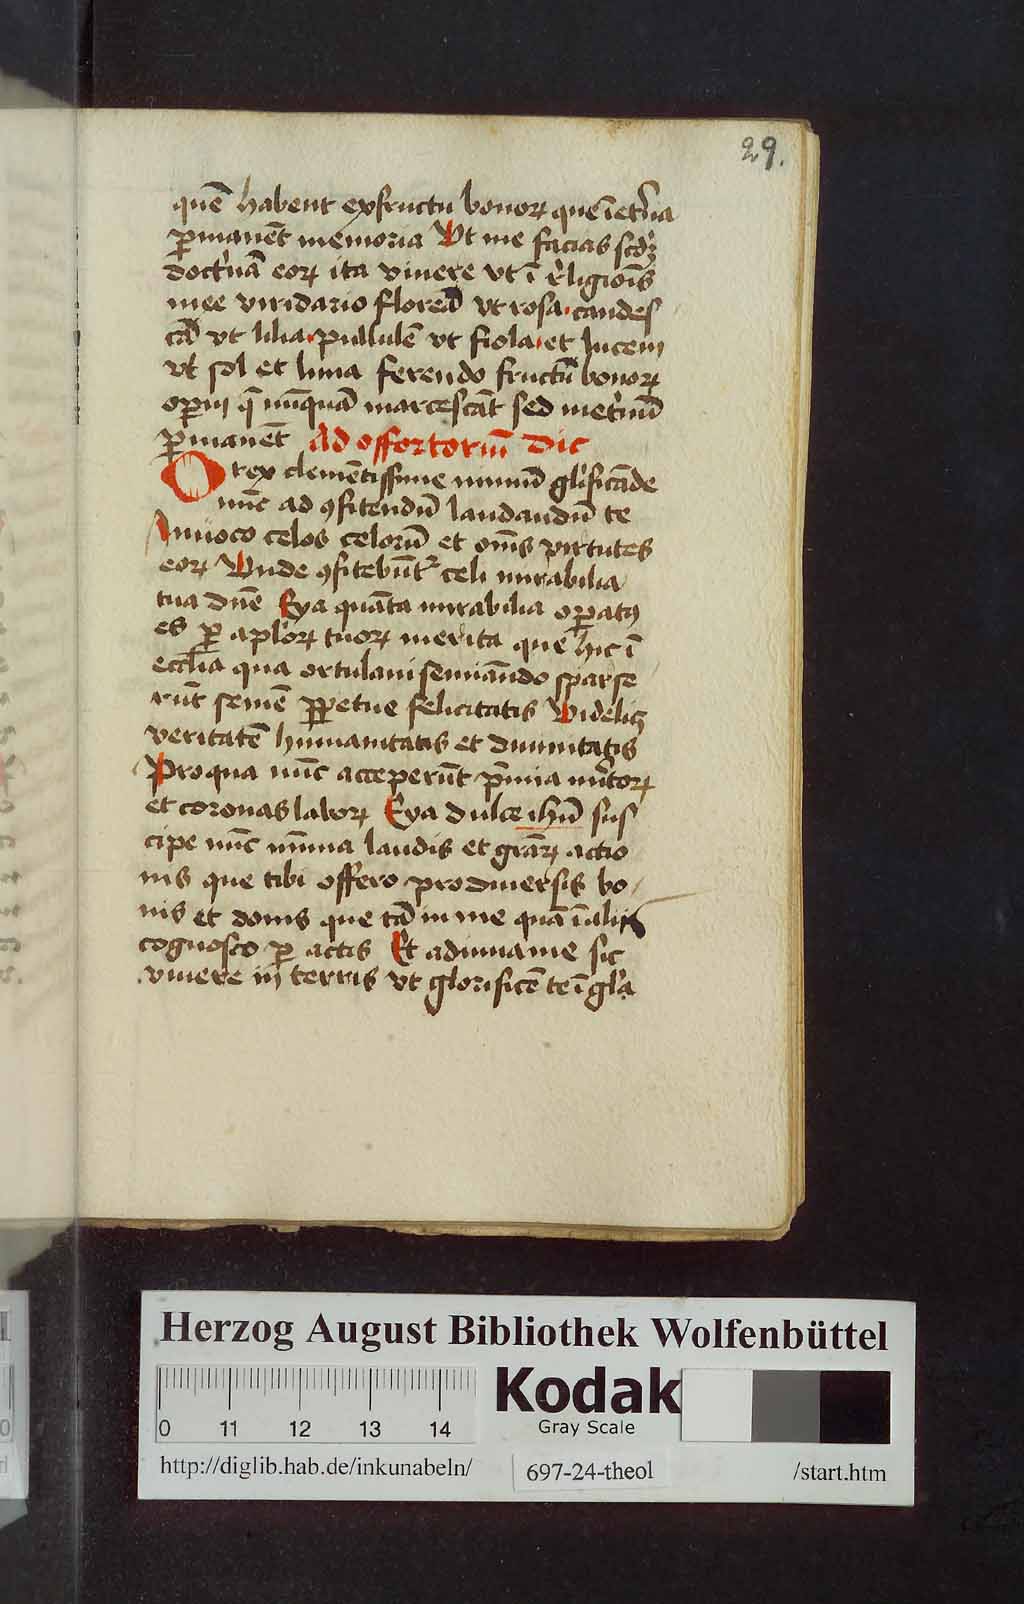 29.
quē habent exfructu bonoꝝ que ī et'na
ꝑmanēt memoria Vt me facias scdꝫ
doct'nā eoꝝ ita viuere vt ī r'ligiōis
mee viridario floreā vt rosa candes
cā vt lilia pullulē vt fiola et lucem
vt sol et luna ferendo fructū bonoꝝ
oꝑm q̄ nūquā marcescāt sed
ꝑmanēt Ad offortoriū Dic
O rex clemētissime nimiū gl'ificāde
nūc ad ꝯfitendū laudandū te
Inuoco celos celorū et om̄s virtutes
eoꝝ Vnde ꝯfitebūt᷑ celi mirabilia
tua dn̄e Eya quāta mirabilia oꝑatꝰ
es ꝑ apl'oꝝ tuoꝝ merita que hic ī
eccl'ia qua ortulani semīando sparse
rūt semē ꝑpetue felicitatis Videlicꝫ
veritatē humanitatis et diuinitatis
Pro qua nūc acceperūt p̄mia m'itoꝝ
et coronas laboꝝ Eya dulce ihū sus
cipe nūc mūia laudis et grāꝝ actio
nis que tibi offero pro diuersis bo
nis et donis que tā in me quā ī alijs
cognosco ꝑ actis Et adiuua me sic
viuere in terris vt glorificē te ī gl'a
Herzog August Bibliothek Wolfenbüttel
0 11 12 13 14
Kodak
Gray Scale
http://diglib.hab.de/inkunabeln/
697-24-theol
/start.htm